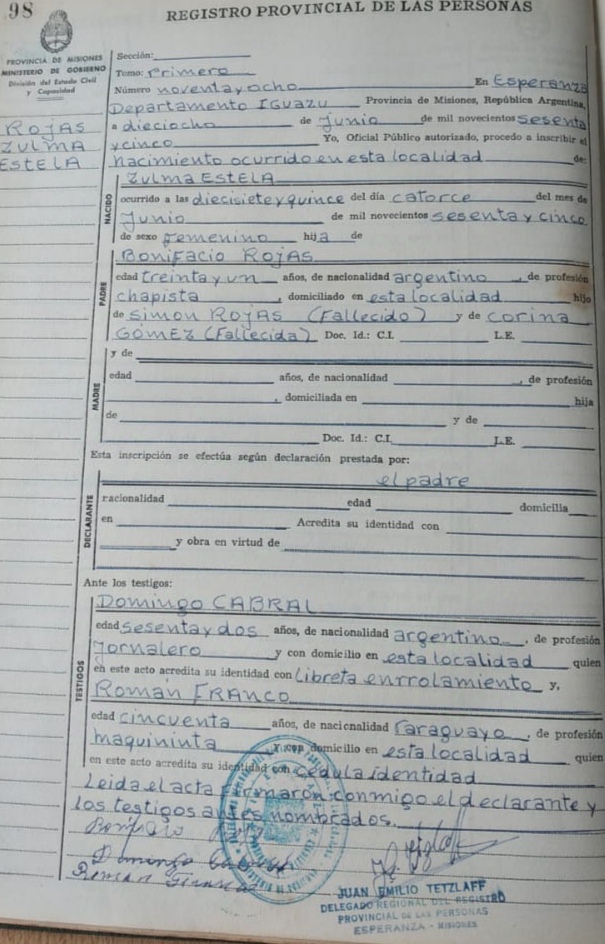 98
REGISTRO PROVINCIAL DE LAS PERSONAS
PROVINCIA DE MISIONES
MINISTERIO DE GOBIERNO
División del Estado Civil
y Capacidad
ROJAS
ZULMA
ESTELA
Sección:
Tomo: Primero
Número noventa y ocho En Esperanza
Departamento IGUAZU Provincia de Misiones, República Argentina,
a dieciocho de Junio de mil novecientos sesenta
y cinco Yo, Oficial Público autorizado, procedo a inscribir el
nacimiento ocurrido en esta localidad de:
NACIDO
ZULMA ESTELA
ocurrido a las diecisiete y quince del día catorce del mes de
Junio de mil novecientos sesenta y cinco
de sexo Femenino hija de
PADRE
Bonifacio ROJAS
edad treinta y un años, de nacionalidad argentino, de profesión
chapista, domiciliado en esta localidad hijo
de Simon ROJAS (Fallecido) y de corina
GOMEZ (Fallecida) Doc. Id.: C.I. L.E.
MADRE
y de
edad años, de nacionalidad , de profesión
, domiciliada en hija
de y de
Doc. Id.: C.I. L.E.
Esta inscripción se efectúa según declaración prestada por:
DECLARANTE
el padre
racionalidad edad domicilia
en Acredita su identidad con
y obra en virtud de
Ante los testigos:
TESTIGOS
Domingo CABRAL
edad sesenta y dos años, de nacionalidad argentino, de profesión
Jornalero y con domicilio en esta localidad quien
en este acto acredita su identidad con Libreta enrrolamiento y,
Roman FRANCO
edad cincuenta años, de nacionalidad Paraguayo, de profesión
maquininta y con domicilio en esta localidad quien
en este acto acredita su identidad con cédula identidad
Leida el acta Firmaron conmigo el declarante y
los testigos antes nombrados.
Domingo
Roman Franco
JUAN EMILIO TETZLAFF
DELEGADO REGIONAL DEL REGISTRO
PROVINCIAL DE LAS PERSONAS
ESPERANZA - MISIONES